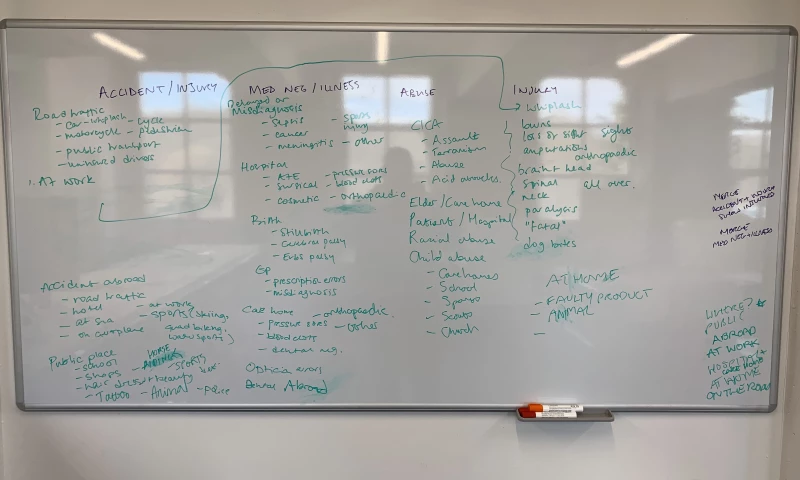 ACCIDENT / INJURY
Road traffic
- car - whiplash - cycle
- motorcycle - pedestrian
- public transport
- uninsured drivers
AT work
Accident abroad
- road traffic
- hotel - at work
- at sea - sports (skiing,
- on aeroplane quad biking,
water sports)
Public place
- school HORSE RIDING
- shops - SPORTS
- hairdresser + beauty
- Tattoo - Animal - Police
MED NEG / ILLNESS
Delayed or
Misdiagnosis
- sepsis - spinal
- cancer injury
- meningitis - other
Hospital
- A+E - pressure sores
- surgical - blood clots
- cosmetic - orthopaedic
Birth
- Stillbirth
- Cerebral palsy
- Erbs palsy
GP
- prescription errors
- misdiagnosis
Care home - orthopaedic
- pressure sores - other
- blood clots
- dental neg.
Optician errors
Dental Abroad
ABUSE
CICA
- Assault
- Terrorism
- Abuse
- Acid attacks
Elder / Carehome
Patient / Hospital
Racial abuse
Child abuse
- Carehomes
- School
- Sports
- Scouts
- Church
INJURY
whiplash
burns
loss of sight sight
amputations
orthopaedic
brain + head
spinal all over.
neck
paralysis
"Fatal"
dog bites
AT HOME
- FAULTY PRODUCT
- ANIMAL
-
MERGE
ACCIDENT + INJURY
MERGE
MED NEG + ILLNESS
WHERE?
PUBLIC
ABROAD
AT WORK
HOSPITAL +
CARE HOME
AT HOME
ON THE ROAD